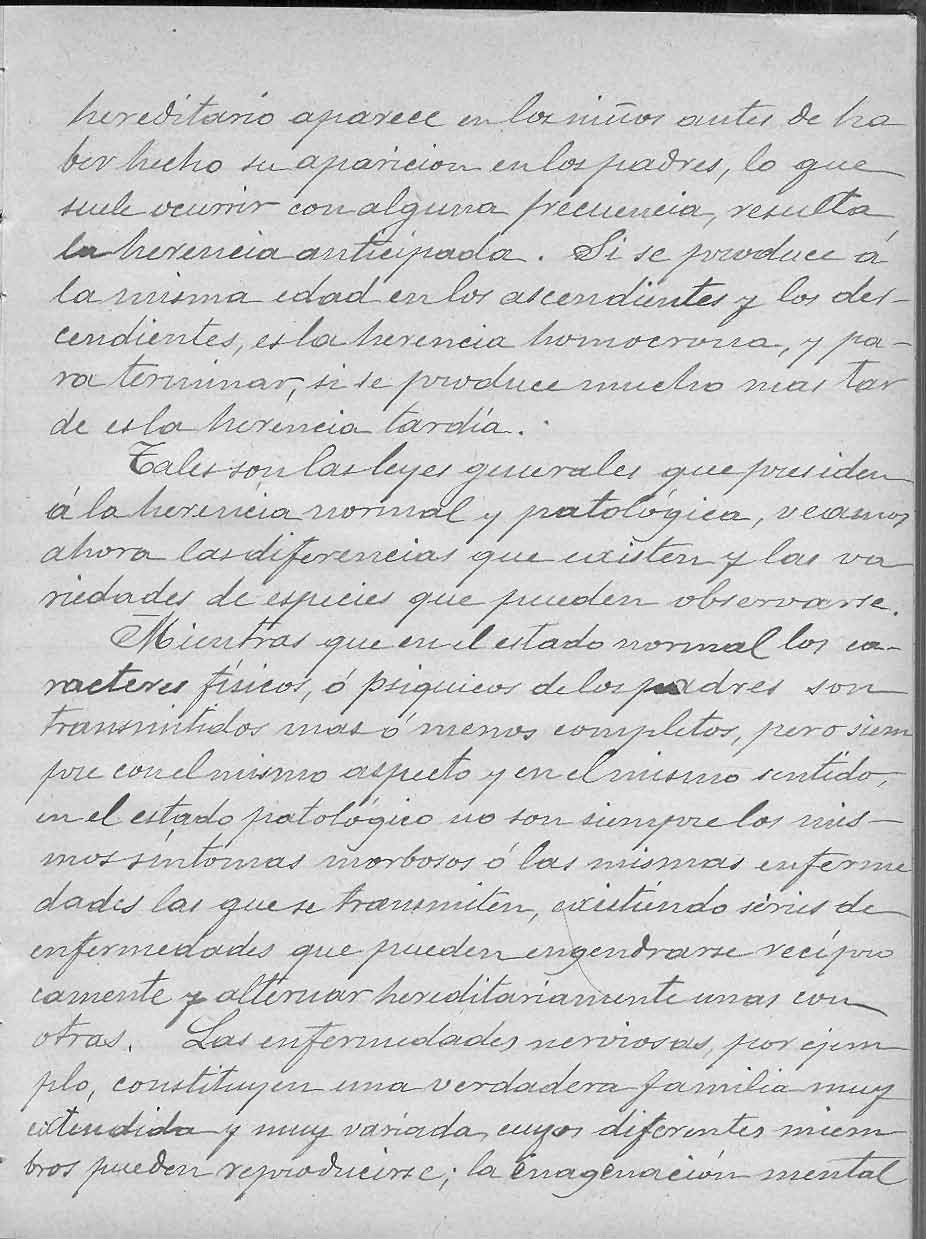 hereditario aparece en los niños antes de ha
ber hecho su aparicion en los padres, lo que
suele ocurrir con alguna frecuencia, resulta
la herencia anticipada. Si se produce á
la misma edad en los ascendientes y los des-
cendientes, es la herencia homocrona, y pa-
ra terminar, si se produce mucho mas tar
de es la herencia tardía.
Tales son las leyes generales que presiden
á la herencia normal y patológica, veamos
ahora las diferencias que existen y las va
riedades de especies que pueden observarse.
Mientras que en el estado normal los ca-
racteres físicos, ó psiquicos de los padres son
transmitidos mas ó menos completos, pero siem
pre con el mismo aspecto y en el mismo sentido,
en el estado patológico no son siempre los mis-
mos sintomas morbosos ó las mismas enferme
dades las que se transmiten, existiendo séries de
enfermedades que pueden engendrarse recípro
camente y alternar hereditariamente unas con
otras. Las enfermedades nerviosas, por ejem
plo, constituyen una verdadera familia muy
extendida y muy variada, cuyos diferentes miem
bros pueden reproducirse; la enagenación mental